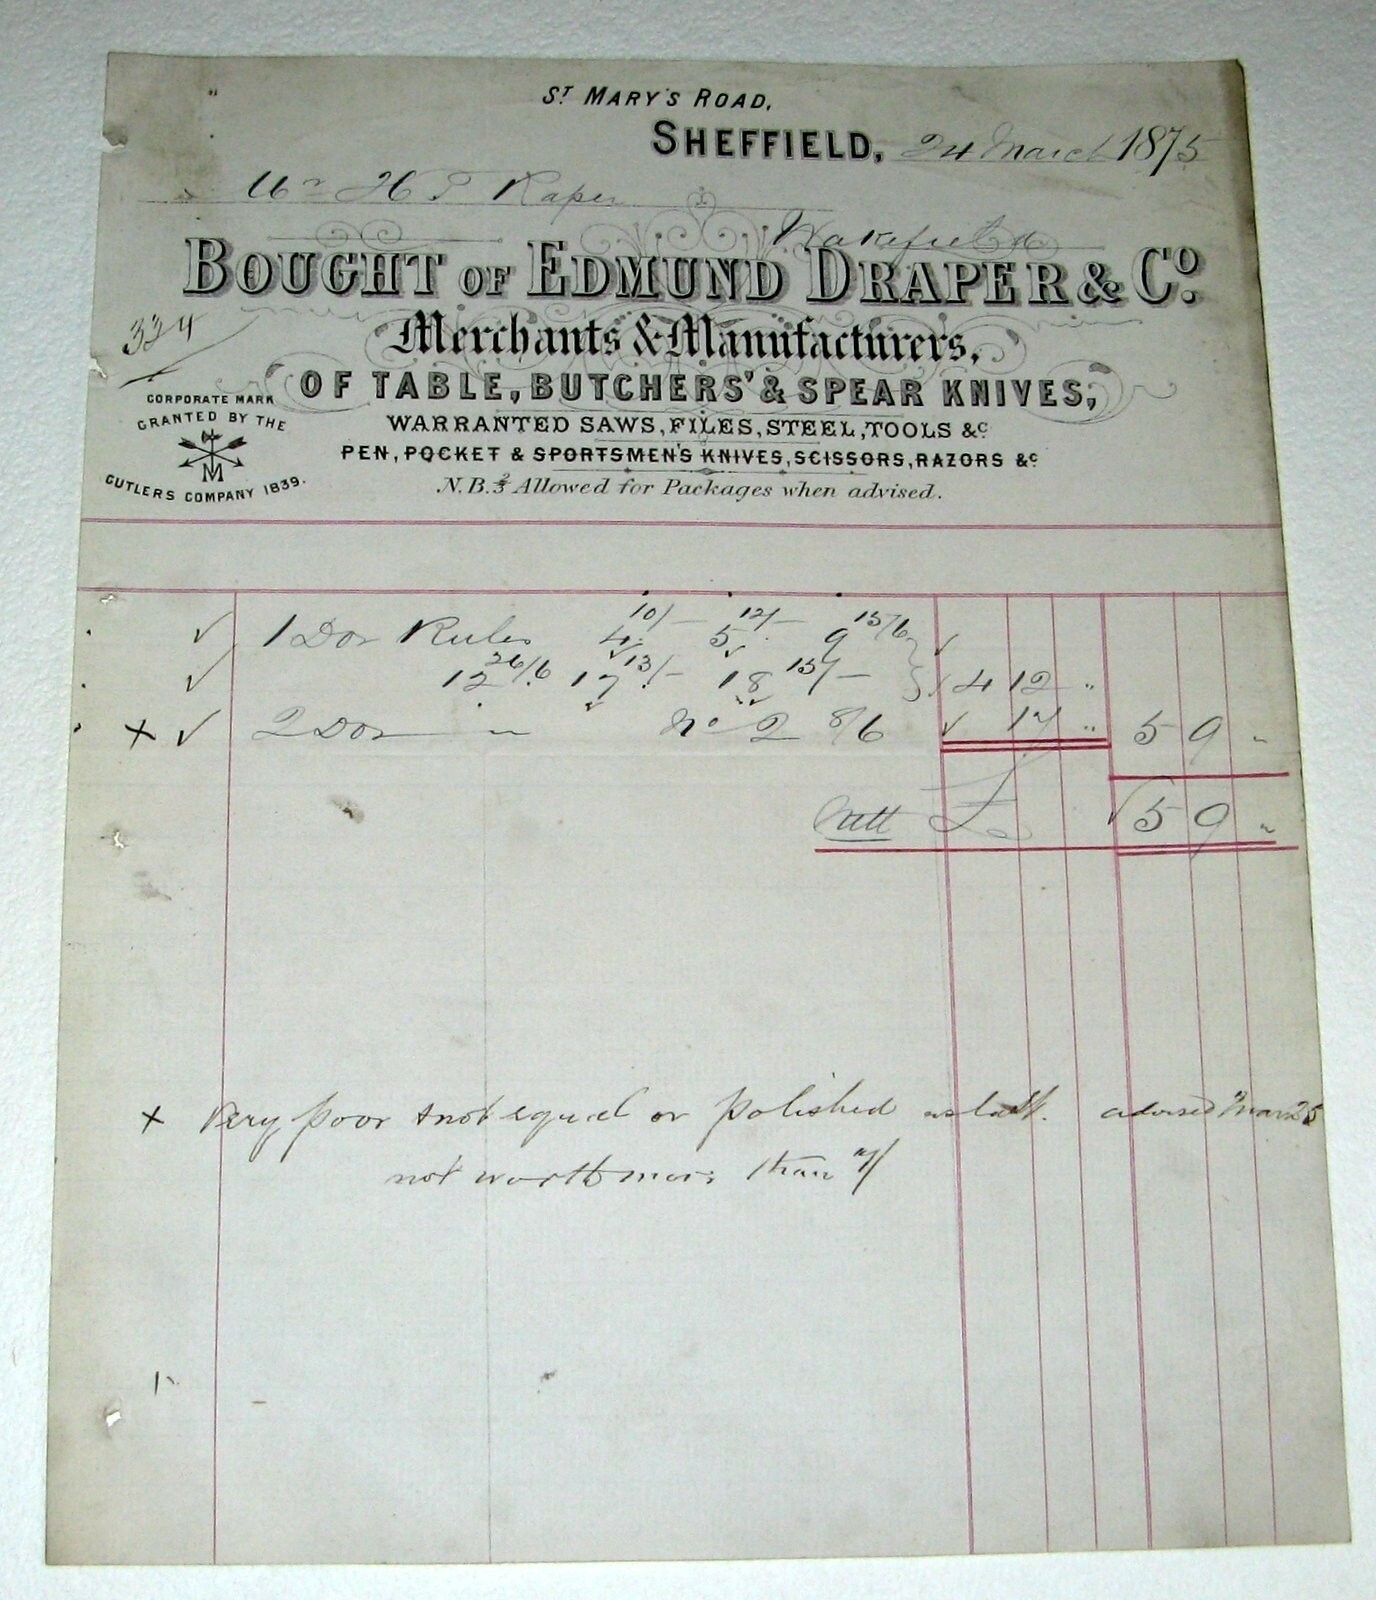 ST MARY'S ROAD,
SHEFFIELD, 24 March 1875
Mr H T Raper
Wakefield
BOUGHT OF EDMUND DRAPER & Co.
334
Merchants & Manufacturers,
OF TABLE, BUTCHERS' & SPEAR KNIVES,
CORPORATE MARK
GRANTED BY THE
N
M
CUTLERS COMPANY 1839.
WARRANTED SAWS, FILES, STEEL, TOOLS &c
PEN, POCKET & SPORTSMEN'S KNIVES, SCISSORS, RAZORS &c
N.B. 2/3 Allowed for Packages when advised.
10/- 12/- 15/6
1 Doz Rules 4 5 9
26/6 13/- 15/-
12 17 18 4 12 "
2 Doz " No 2 8/6 17 " 5 9 "
Nett £ 5 9 "
x Very poor & not equal or polished as last. advised Mar 25
not worth more than 7/